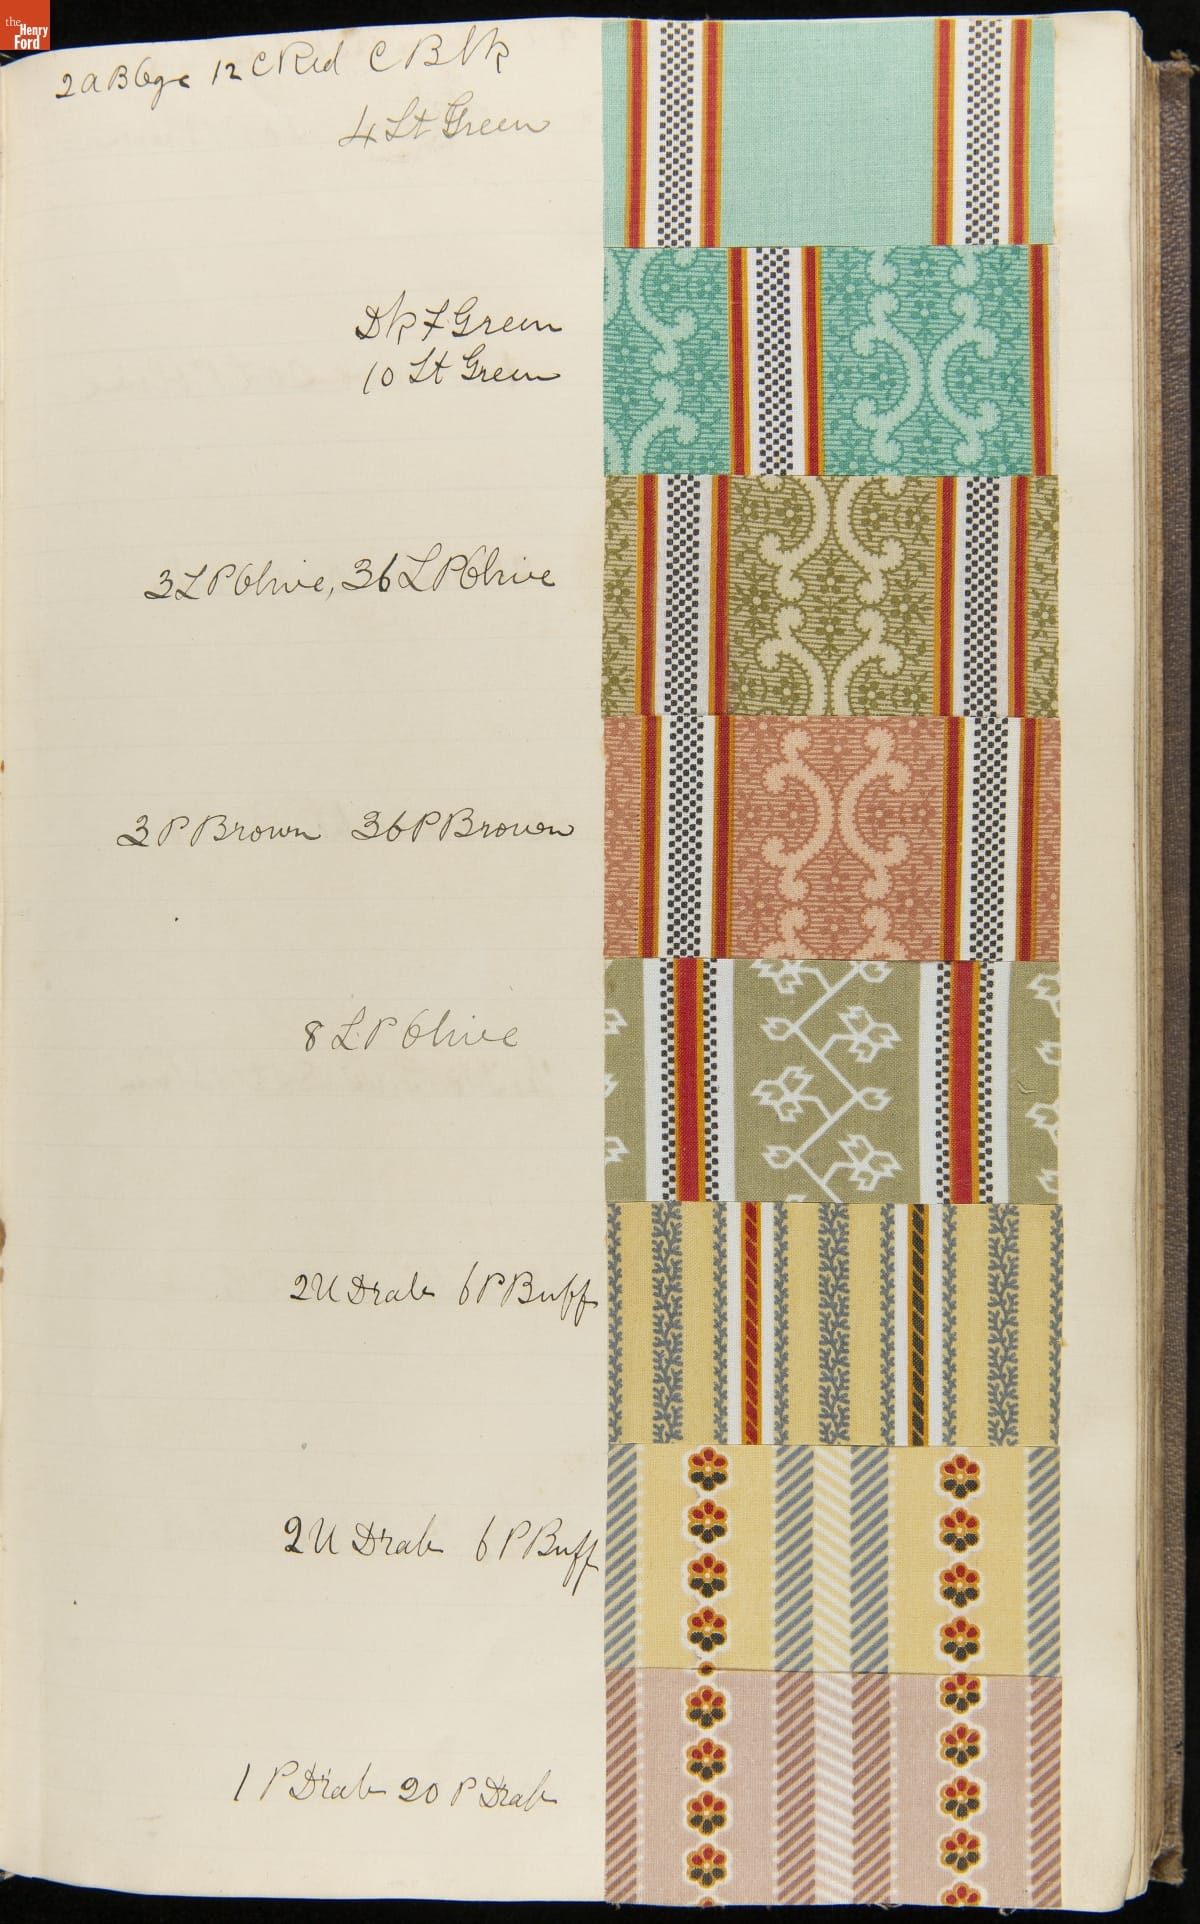 the Henry Ford
2 a B Oge 12 C Red C Blk
4 Lt Green
Dk F Green
10 Lt Green
3 L P Olive, 36 L P Olive
3 P Brown 36 P Brown
8 L P Olive
2 U Drab 6 P Buff
2 U Drab 6 P Buff
1 P Drab 20 P Drab